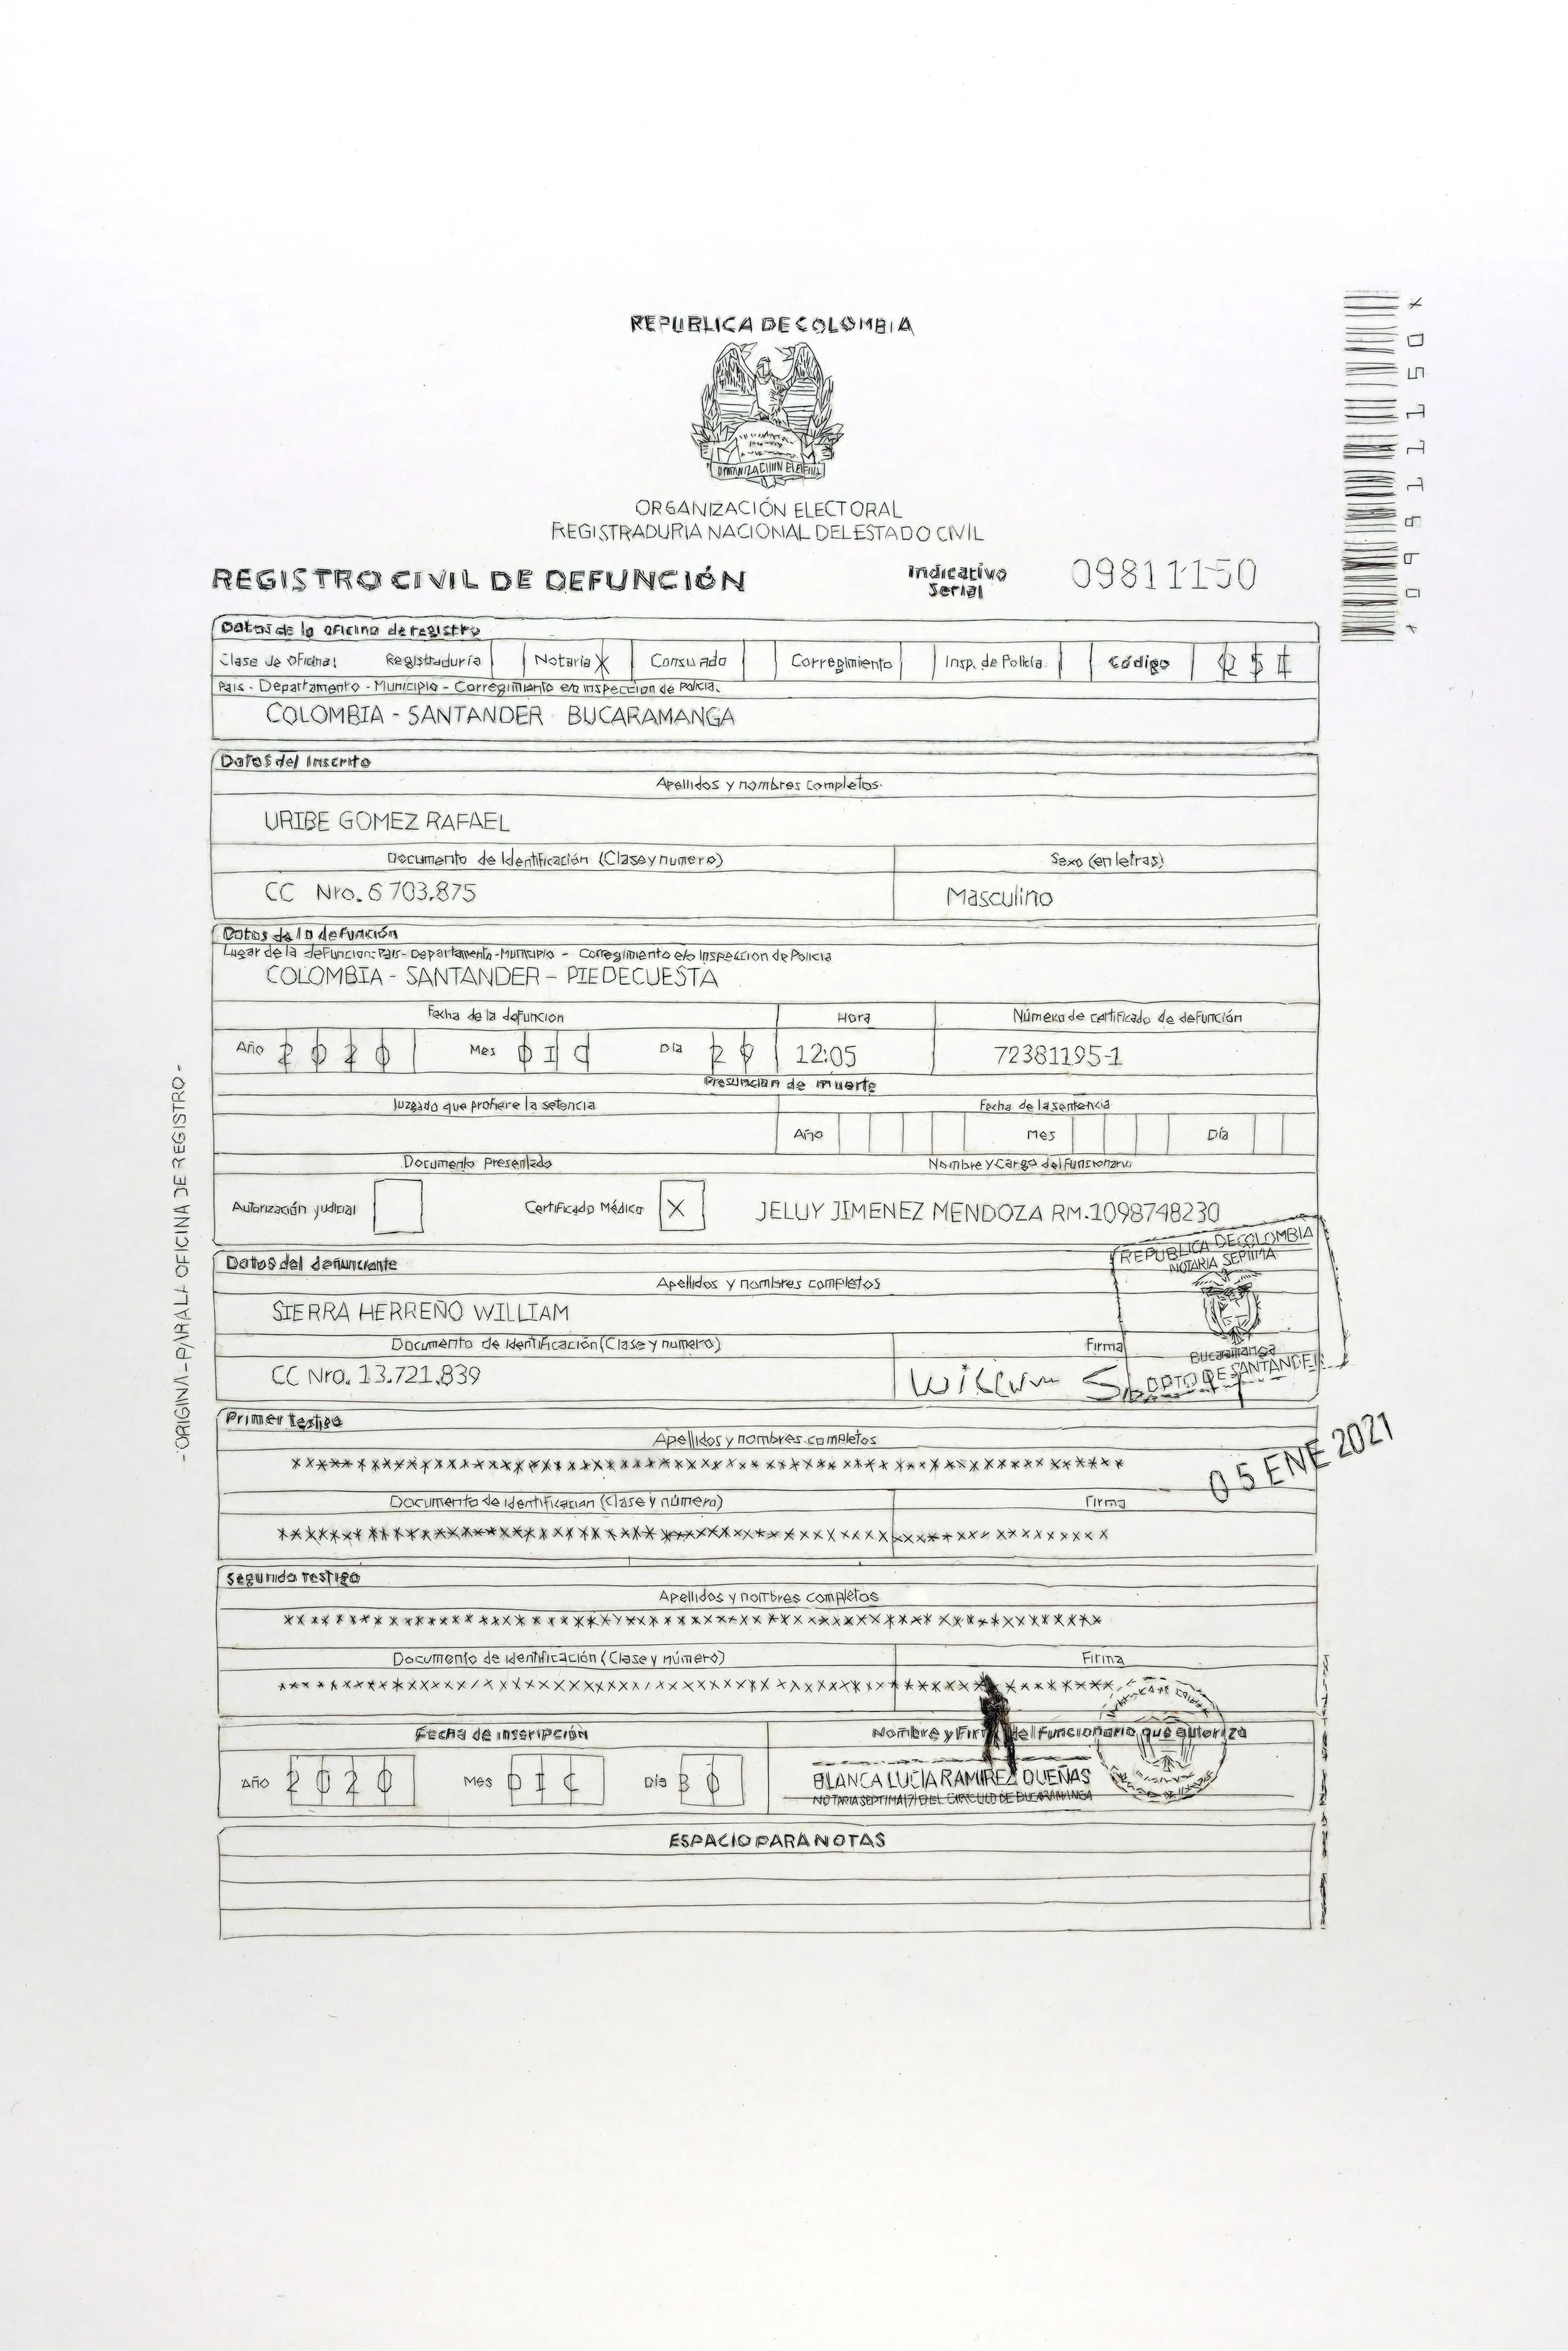 REPUBLICA DE COLOMBIA
ORGANIZACIÓN ELECTORAL
REGISTRADURIA NACIONAL DEL ESTADO CIVIL
REGISTRO CIVIL DE DEFUNCIÓN
Indicativo Serial 09811150
Datos de la oficina de registro
Clase de oficina: Registraduría Notaria X Consulado Corregimiento Insp. de Policía Código
Pais - Departamento - Municipio - Corregimiento e/o inspeccion de Policia.
COLOMBIA - SANTANDER BUCARAMANGA
Datos del inscrito
Apellidos y nombres completos
URIBE GOMEZ RAFAEL
Documento de Identificación (Clase y numero) Sexo (en letras)
CC Nro. 6 703.875 Masculino
Datos de la defunción
Lugar de la defuncion: Pais - Departamento - Municipio - Corregimiento e/o Inspeccion de Policia
COLOMBIA - SANTANDER - PIEDECUESTA
Fecha de la defuncion Hora Número de certificado de defunción
Año 2020 Mes DIC Dia 29 12:05 72381195-1
Presuncion de muerte
Juzgado que profiere la setencia Fecha de la sentencia
Año Mes Día
Documento Presentado Nombre y Cargo del funcionario
Autorización judicial Certificado Médico X JELUY JIMENEZ MENDOZA RM.1098748230
REPUBLICA DE COLOMBIA
NOTARIA SEPTIMA
Bucaramanga
DPTO DE SANTANDER
Datos del denunciante
Apellidos y nombres completos
SIERRA HERREÑO WILLIAM
Documento de Identificación (Clase y numero) Firma
CC Nro. 13.721.839
Primer testigo
Apellidos y nombres completos
05 ENE 2021
Documento de identificacion (Clase y número) Firma
Segundo testigo
Apellidos y nombres completos
Documento de identificación (Clase y número) Firma
Fecha de inscripción Nombre y Firma del funcionario que autoriza
Año 2020 Mes DIC Día 30
BLANCA LUCIA RAMIREZ DUEÑAS
NOTARIA SEPTIMA (7) DEL CIRCULO DE BUCARAMANGA
ESPACIO PARA NOTAS
-ORIGINAL-PARA LA OFICINA DE REGISTRO-